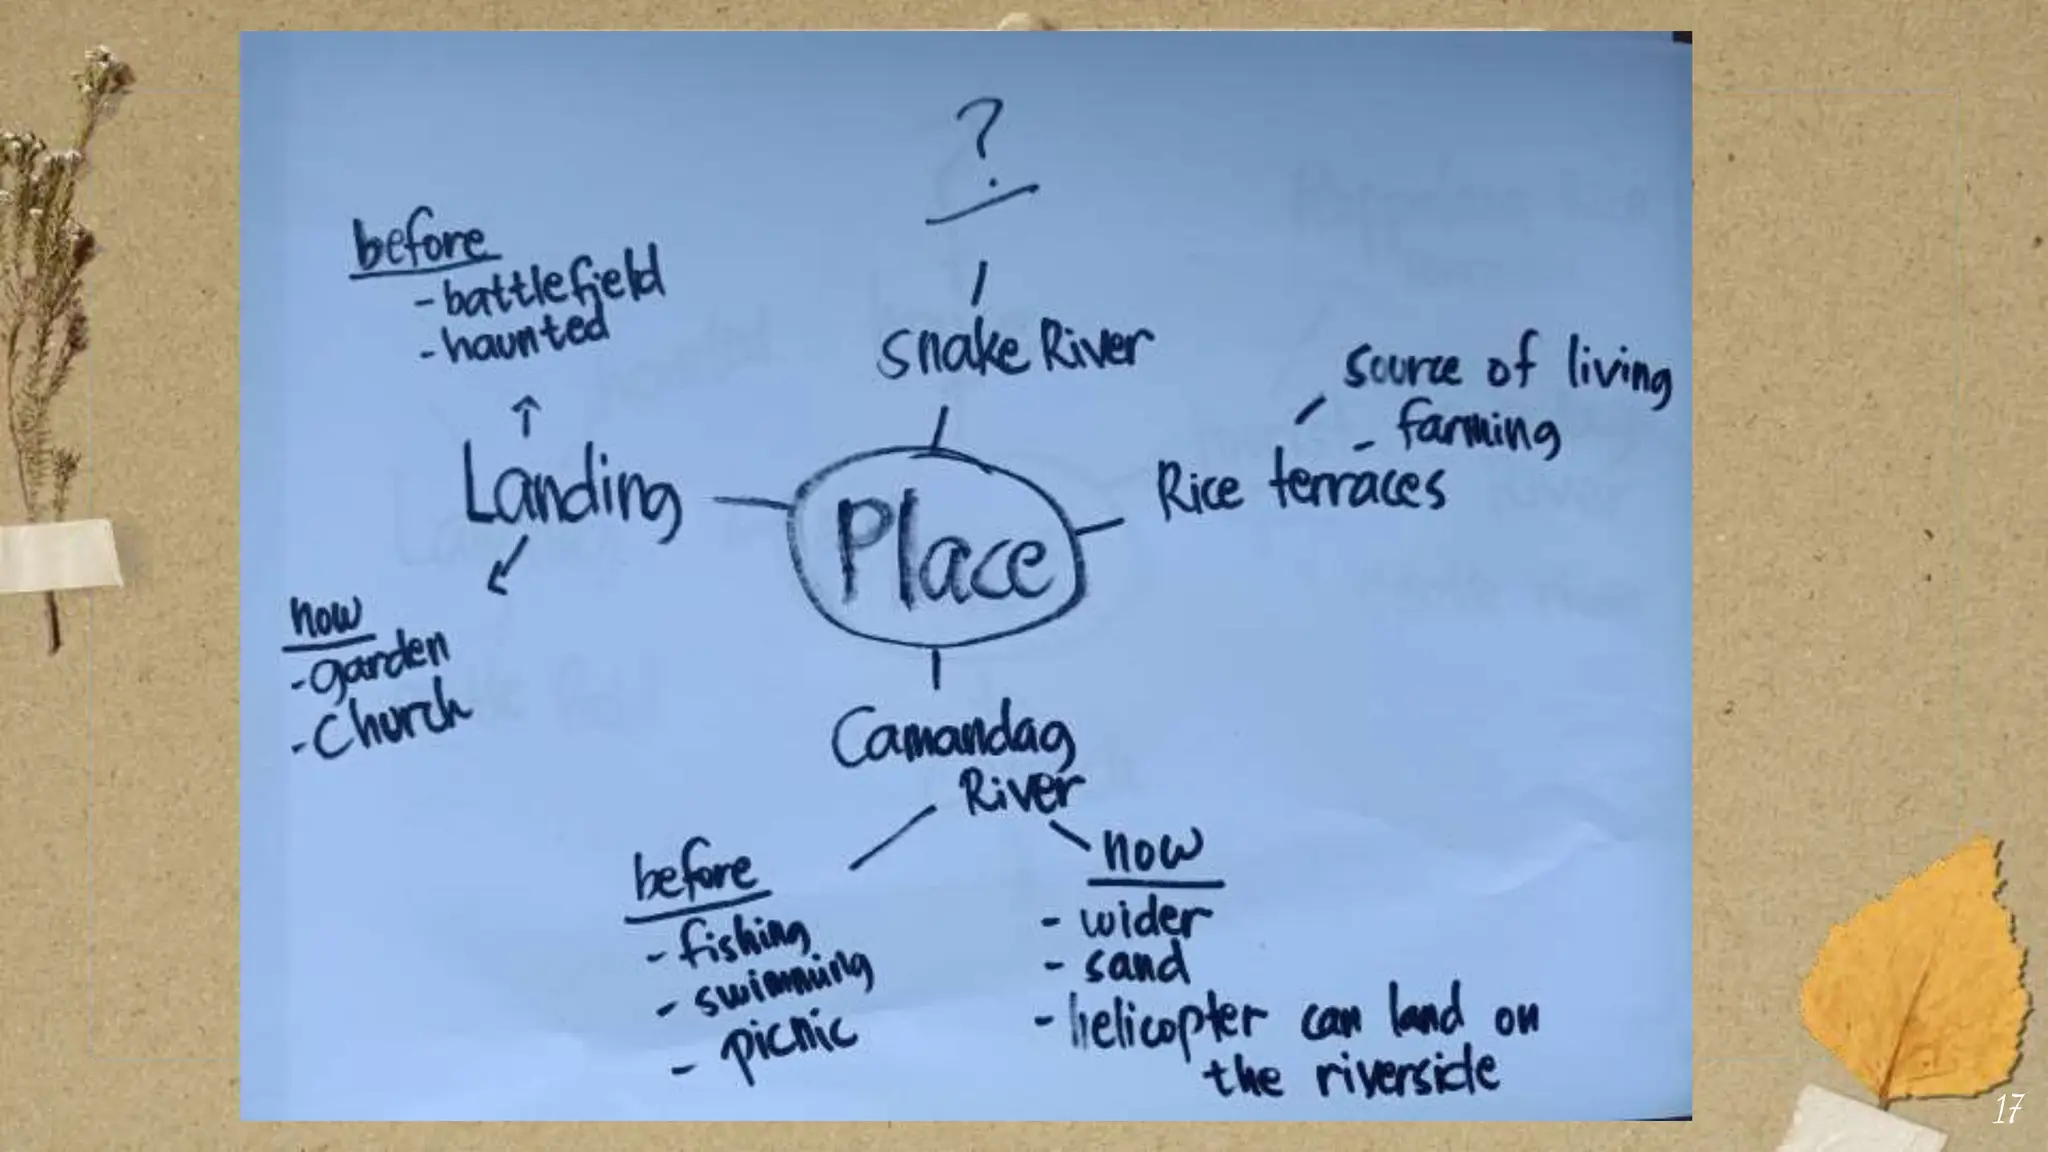 ?
snake River
before
- battlefield
- haunted
Landing
now
- garden
- Church
Place
source of living
- farming
Rice terraces
Camandag
River
before
- fishing
- swimming
- picnic
now
- wider
- sand
- helicopter can land on
the riverside
17